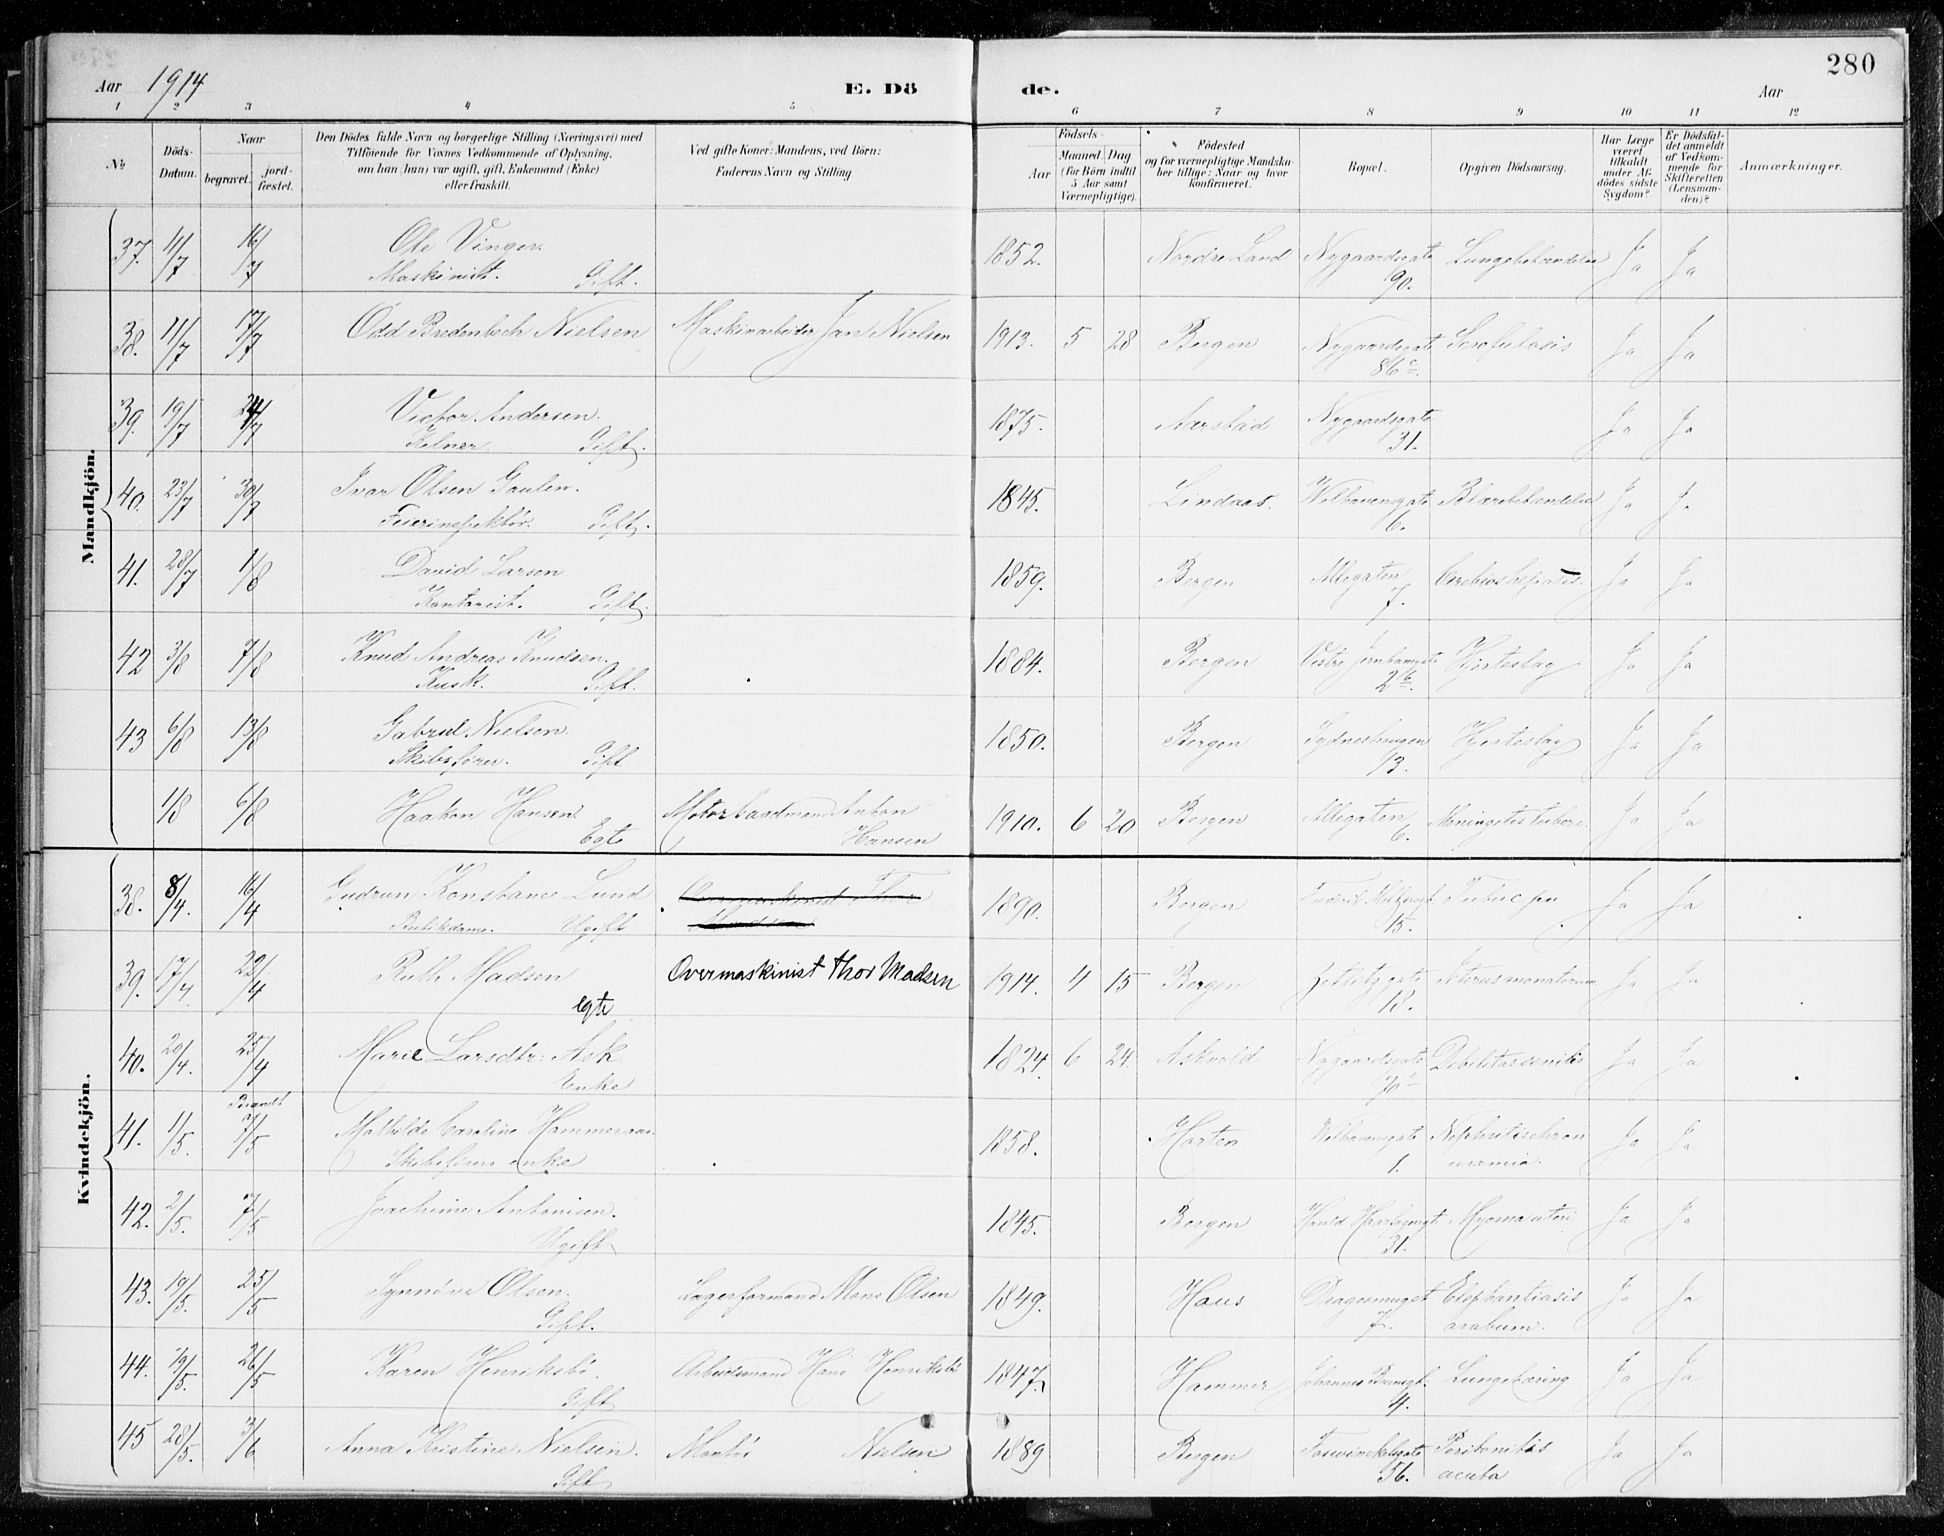 280
Aar 1914
E. Dö
de.
Aar
1 2 3 4 5 6 7 8 9 10 11 12
No
Döds-Datum.
Naar
begravet. jordfæstet.
Den Dödes fulde Navn og borgerlige Stilling (Næringsvei) med
Tilföiende for Voxnes Vedkommende af Oplysning,
om han (hun) var ugift, gift, Enkemand (Enke)
eller fraskilt.
Ved gifte Koner: Mandens, ved Börn:
Faderens Navn og Stilling.
Födsels-
Aar
Maaned Dag
(for Börn indtil
5 Aar samt
Værnepligtige).
Födested
og for værnepligtige Mandska-
ber tillige: Naar og hvor
konfirmeret.
Bopæl.
Opgiven Dödsaarsag.
Har Læge
været
tilkaldt
under Af-
dödes sidste
Sygdom?
Er Dödsfal-
det anmeldt
af Vedkom-
mende for
Skifteretten
(Lensman-
den)?
Anmærkninger.
Mandkjön.
37. 11/7 16/7 Ole Vinger. 1852. Nordre Land Nygaardsgate Lungebetændelse Ja Ja
Maskinist. Gift. 90.
38. 11/7 17/7 Odd Bredenbech Nielsen Maskinarbeider Jan Nielsen 1913. 5 28 Bergen Nygaardsgate Scrofulosis Ja Ja
86c.
39. 19/7 24/7 Victor Andersen. 1875. Aarstad Nygaardsgate Ja Ja
Kelner. Gift. 31.
40. 23/7 30/7 Ivar Olsen Gaulen. 1845. Lindaas. Welhavensgate Blærebetændelse Ja Ja
Feierinspektør. Gift. 6.
41. 28/7 1/8 David Larsen 1859. Bergen Allegaten Ja Ja
Kontorist. Gift. 7.
42 3/8 7/8 Knud Andreas Knudsen. 1884. Bergen Vestre Hjerteslag Ja Ja
Kusk. Gift. 2b.
43 6/8 13/8 Gabriel Nielsen. 1850. Bergen Sydneshaugen Hjerteslag Ja Ja
Skibsfører. Gift 13.
1/8 6/8 Haakon Hansen. Motorbaadmand Anton 1910. 6 20 Bergen Allegaten Meningitis tuberc. Ja Ja
Egte Hansen 6.
Kvindekjön.
38. 8/4. 16/4 Gudrun Konstance Lund Overmaskinist Thor 1890. Bergen Tuberc pu Ja Ja
Butikdame. Ugift Madsen 15.
39. 17/4. 22/4 Ruth Madsen Overmaskinist Thor Madsen 1914. 4 15 Bergen Zetlitzgate Ja Ja
egte 18.
40. 20/4. 25/4 Marie Larsdtr: Ask 1824. 6 24. Askvold Nygaardsgate Debilitas senilis Ja Ja
Enke
Brændt
41. 1/5. 7/5 Mathilde Caroline 1858. Horten Welhavensgate Ja Ja
Skibsførers enke 1. uræmia.
42. 2/5. 7/5 Joachime Antonisen. 1845. Bergen Myoma uteri Ja Ja
Ugift 31.
43. 19/5. 25/5 Synnøve Olsen. Lagerformand Mons Olsen 1849. Haus Dragesmuget Elephantiasis Ja Ja
Gift. 7. arabum.
44. 19/5. 26/5 Karen Henriksbø. Arbeidsmand Hans Henriksbø 1847. Hammer Lungetæring Ja Ja
Gift 4.
45 28/5. 3/6 Anna Kristine Nielsen. Montør Nielsen 1889 Bergen Peritonitis Ja Ja
Gift 56. acuta